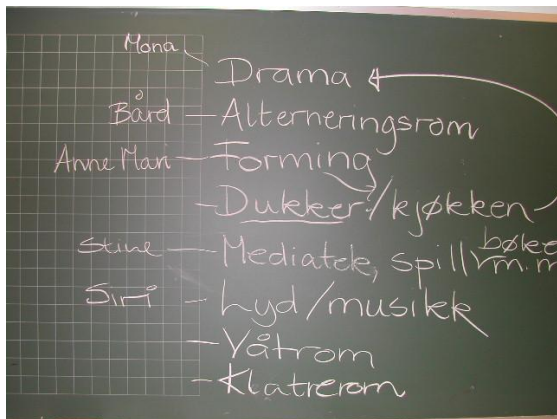 Mona
Drama
Bård - Alterneringsrom
Anne Mari - Forming
- Dukker/kjøkken
Stine - Mediatek, spill bøker m.m
Siri - Lyd/musikk
- Våtrom
- Klatrerom